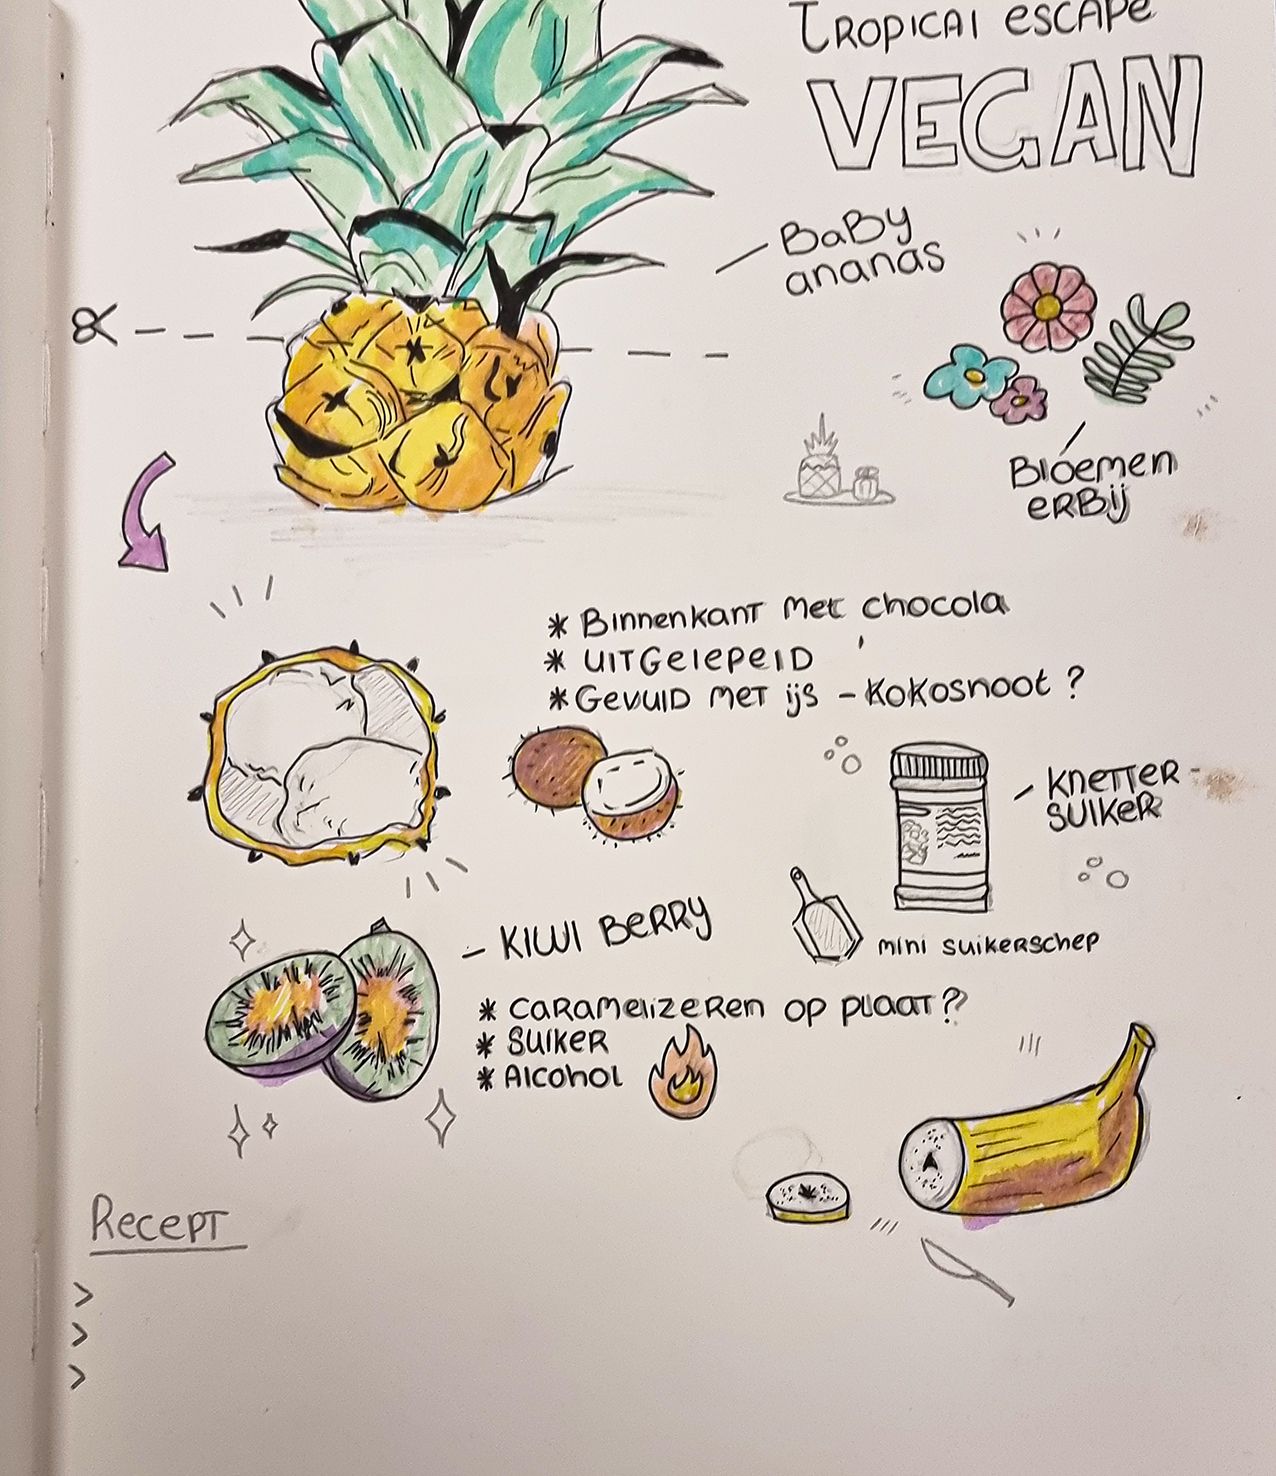 Tropical escape
VEGAN
Baby
ananas
Bloemen
erbij
* Binnenkant met chocola
* uitgelepeld
* Gevuld met ijs - Kokosnoot ?
Knetter-
suiker
mini suikerschep
- Kiwi Berry
* Caramelizeren op plaat?
* Suiker
* Alcohol
Recept
>
>
>